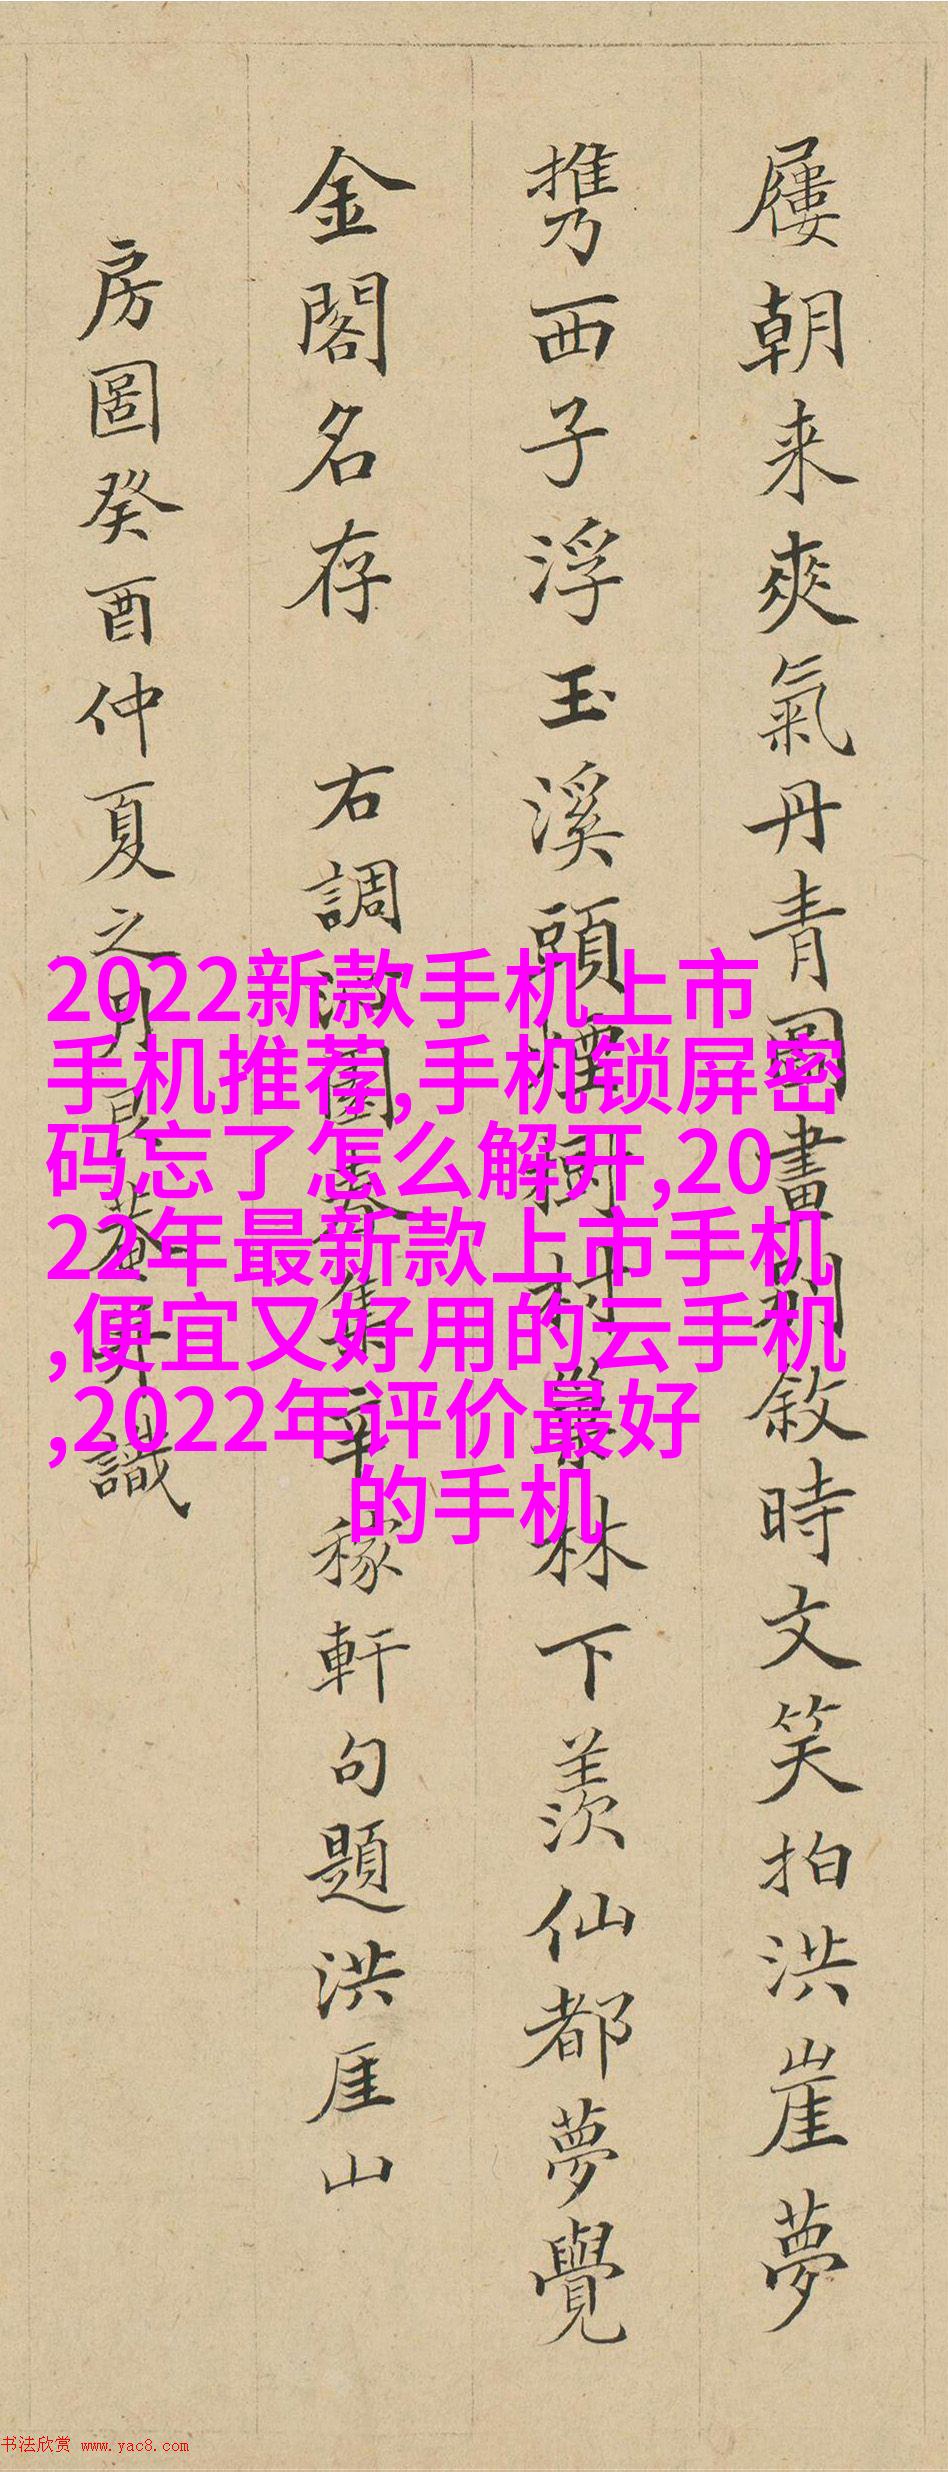 屢朝来爽氣丹青圖畫別敘時文笑拍洪崖夢
携西子浮玉溪頭煙樹村林下羨仙都夢覺
金閣名存 右調沁園春集辛稼軒句題洪厓山
房圖癸酉仲夏之月艮菴并識
2022新款手机上市
手机推荐,手机锁屏密
码忘了怎么解开,20
22年最新款上市手机
,便宜又好用的云手机
,2022年评价最好
的手机
书法欣赏 www.yac8.com